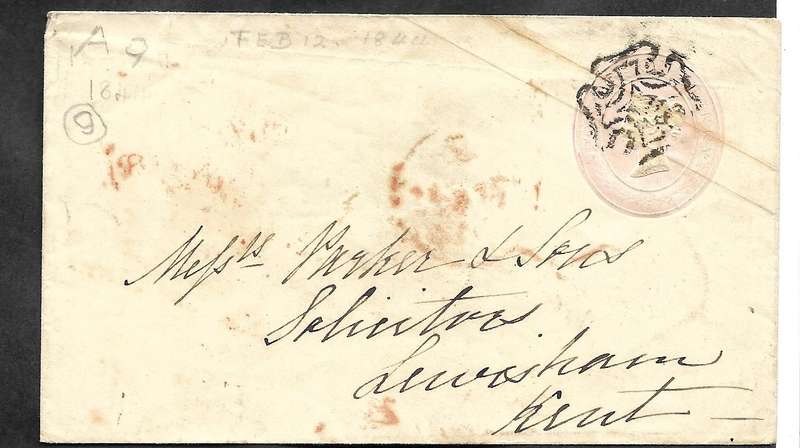 A 9
FEB 12. 1844
1844
9
Messrs Parker & Sons
Solicitors
Lewisham
Kent